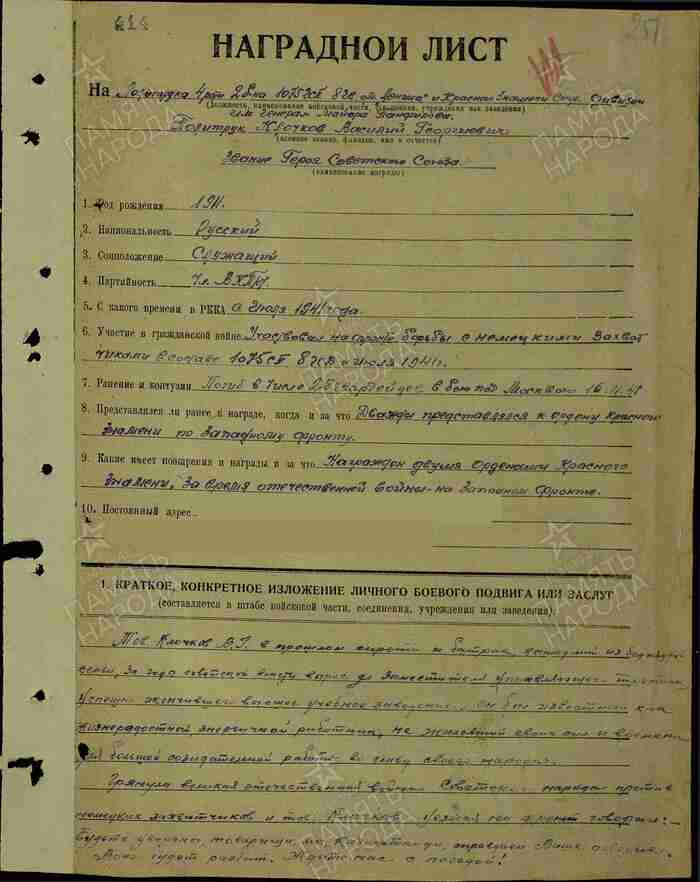 424
251
НАГРАДНОЙ ЛИСТ
На Политрука 4 роты 2 б-на 1075 СП 8 гв. орд. "Ленина" и Красного Знамени Стр. Дивизии
(должность, наименование войсковой части, соединения, учреждения или заведения)
им. Генерал Майора Панфилова.
Политрук Клочков Василий Георгиевич
(военное звание, фамилия, имя и отчество)
Звание Героя Советского Союза.
(наименование награды)
1. Год рождения 1911.
2. Национальность Русский
3. Соцположение Служащий
4. Партийность Чл. ВКП(б).
5. С какого времени в РККА с Июля 1941 года.
6. Участие в гражданской войне Участвовал на фронте борьбы с немецкими захват
чиками в составе 1075 СП 8 гсд с июля 1941 г.
7. Ранение и контузия Погиб в числе 28 гвардейцев в бою под Москвою 16.11.41
8. Представлялся ли ранее к награде, когда и за что Дважды представлялся к ордену Красного
Знамени по Западному фронту.
9. Какие имеет поощрения и награды и за что Награжден двумя Орденами Красного
Знамени, за время отечественной войны на Западном Фронте.
10. Постоянный адрес
1. КРАТКОЕ, КОНКРЕТНОЕ ИЗЛОЖЕНИЕ ЛИЧНОГО БОЕВОГО ПОДВИГА ИЛИ ЗАСЛУГ
(составляется в штабе войсковой части, соединения, учреждения или заведения).
Тов. Клочков В.Г. в прошлом сирота и батрак, выходец из бедняцкой
семьи, за года советской власти вырос до заместителя Управляющего
успешно окончившего высшее учебное заведение. Он был известен как
жизнерадостный энергичный работник, не жалевший своих сил и времени
для большой созидательной работы во славу своего народа.
Грянула великая отечественная война Советск. народа против
немецких захватчиков и тов. Клочков уезжая на фронт говорил:-
Будьте уверены, товарищи, мы, оправдаем Ваше доверие.
Враг будет разбит. Ждите нас с победой!
ПАМЯТЬ НАРОДА